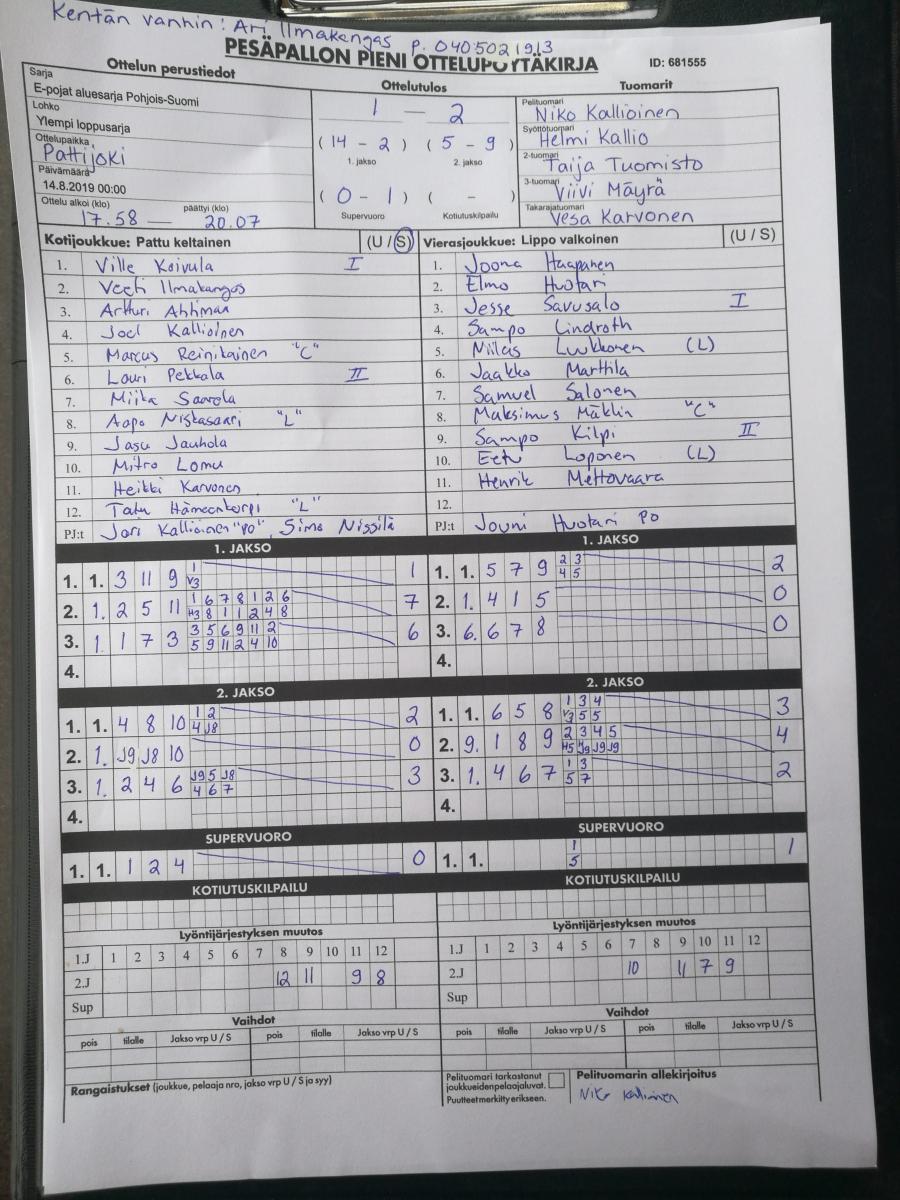 Kentän vanhin: Ari Ilmakangas p. 0405021913
PESÄPALLON PIENI OTTELUPÖYTÄKIRJA
ID: 681555
Ottelun perustiedot
Sarja
E-pojat aluesarja Pohjois-Suomi
Lohko
Ylempi loppusarja
Ottelupaikka
Pattijoki
Päivämäärä
14.8.2019 00:00
Ottelu alkoi (klo) päättyi (klo)
17.58 — 20.07
Ottelutulos
1 — 2
(14 - 2) (5 - 9)
1. jakso 2. jakso
(0 - 1) ( - )
Supervuoro Kotiutuskilpailu
Tuomarit
Pelituomari
Niko Kallioinen
Syöttötuomari
Helmi Kallio
2-tuomari
Taija Tuomisto
3-tuomari
Viivi Mäyrä
Takarajatuomari
Vesa Karvonen
Kotijoukkue: Pattu keltainen (U / S)
1. Ville Koivula I
2. Veeti Ilmakangas
3. Artturi Ahlman
4. Joel Kallioinen
5. Marcus Reinikainen "C"
6. Lauri Pekkala II
7. Miika Saarela
8. Aapo Niskasaari "L"
9. Jasu Jauhola
10. Mitro Lomu
11. Heikki Karvonen
12. Tatu "L"
PJ:t Jari Kallioinen "PO", Simo Nissilä
Vierasjoukkue: Lippo valkoinen (U / S)
1. Joona Haapanen
2. Elmo Huotari
3. Jesse Savusalo I
4. Sampo Lindroth
5. Niilas Luukkonen (L)
6. Jaakko Marttila
7. Samuel Salonen
8. Maksimus Mäklin "C"
9. Sampo Kilpi II
10. Eetu Loponen (L)
11. Henrik Mettovaara
12.
PJ:t Jouni Huotari PO
1. JAKSO
1. 1. 3 11 9 1 1
V3
2. 1. 2 5 11 1 6 7 8 1 2 6 7
H3 8 1 1 2 4 8
3. 1 1 7 3 3 5 6 9 11 2 6
5 9 11 2 4 10
4.
1. JAKSO
1. 1. 5 7 9 2 3 2
4 5
2. 1. 4 1 5 0
3. 6. 6 7 8 0
4.
2. JAKSO
1. 1. 4 8 10 1 2 2
4 J8
2. 1. J9 J8 10 0
3. 1. 2 4 6 J9 5 J8 3
4 6 7
4.
2. JAKSO
1. 1. 6 5 8 1 3 4 3
V3 5 5
2. 9. 1 8 9 2 3 4 5 4
H5 J9 J9
3. 1. 4 6 7 1 3 2
5 7
4.
SUPERVUORO
1. 1. 1 2 4 0
SUPERVUORO
1. 1. 1 1
5
KOTIUTUSKILPAILU
Lyöntijärjestyksen muutos
1.J 1 2 3 4 5 6 7 8 9 10 11 12
2.J 12 11 9 8
Sup
Vaihdot
pois tilalle Jakso vrp U / S pois tilalle Jakso vrp U / S
Rangaistukset (joukkue, pelaaja nro, jakso vrp U / S ja syy)
KOTIUTUSKILPAILU
Lyöntijärjestyksen muutos
1.J 1 2 3 4 5 6 7 8 9 10 11 12
2.J 10 11 7 9
Sup
Vaihdot
pois tilalle Jakso vrp U / S pois tilalle Jakso vrp U / S
Pelituomari tarkastanut
joukkueiden pelaajaluvat.
Puutteet merkitty erikseen.
Pelituomarin allekirjoitus
Niko Kallioinen